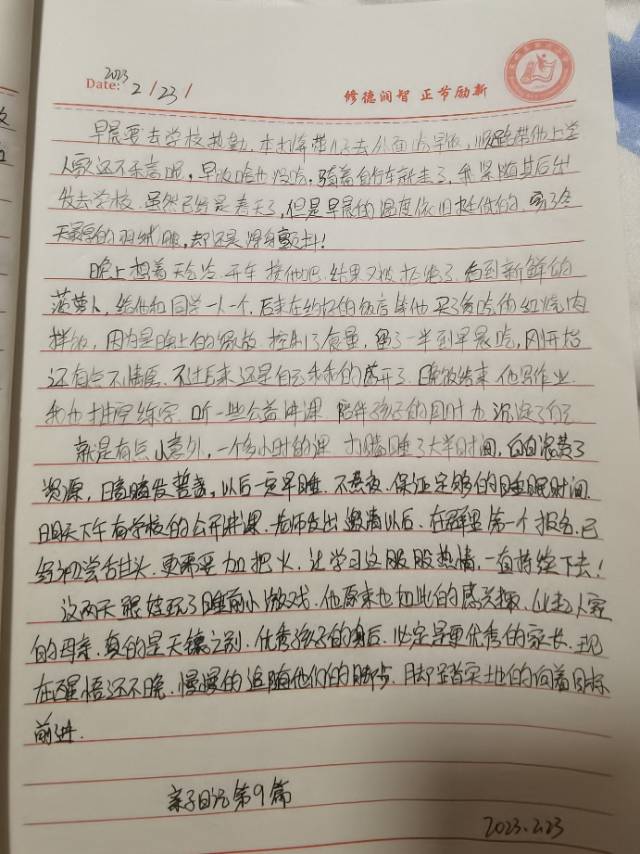 2023
Date: 2/23/
修德润智 正节励新
早晨要去学校执勤，本打算带儿子去外面吃早饭，顺路带他上学
人家还不乐意呢，早饭啥也没吃，骑着自行车就走了，我紧随其后出
发去学校，虽然已经是春天了，但是早晨的温度依旧挺低的，穿了冬
天最厚的羽绒服，却还是浑身颤抖！
晚上想着天气冷，开车接他吧，结果又被拒绝了，看到新鲜的
菠萝，给他和同学一人一个，后来在约好的饭店等他，买了爱吃的红烧肉
拌饭，因为是晚上的缘故，控制了食量，留了一半到早晨吃，刚开始
还有点不情愿，不过后来还是自己乖乖的离开了，晚饭结束，他写作业，
我也抓紧练字，听一些公益讲课，陪伴孩子的同时也沉淀了自己
就是有点小意外，一个多小时的课，打瞌睡了大半时间，白白浪费了
资源，暗暗发誓，以后一定早睡，不熬夜，保证足够的睡眠时间，
明天下午有学校的公开讲课，老师发出邀请以后，在群里第一个报名，已
经初尝甜头，更需要加把火，让学习这股股热情，一直持续下去！
这两天跟娃玩了睡前小游戏，他原来也如此的感兴趣，比起人家
的母亲，真的是天壤之别，优秀孩子的身后，必定是更优秀的家长，现
在醒悟还不晚，慢慢的追随他们的脚步，脚踏实地的向着目标
前进.
亲子日记第9篇
2023.2.23